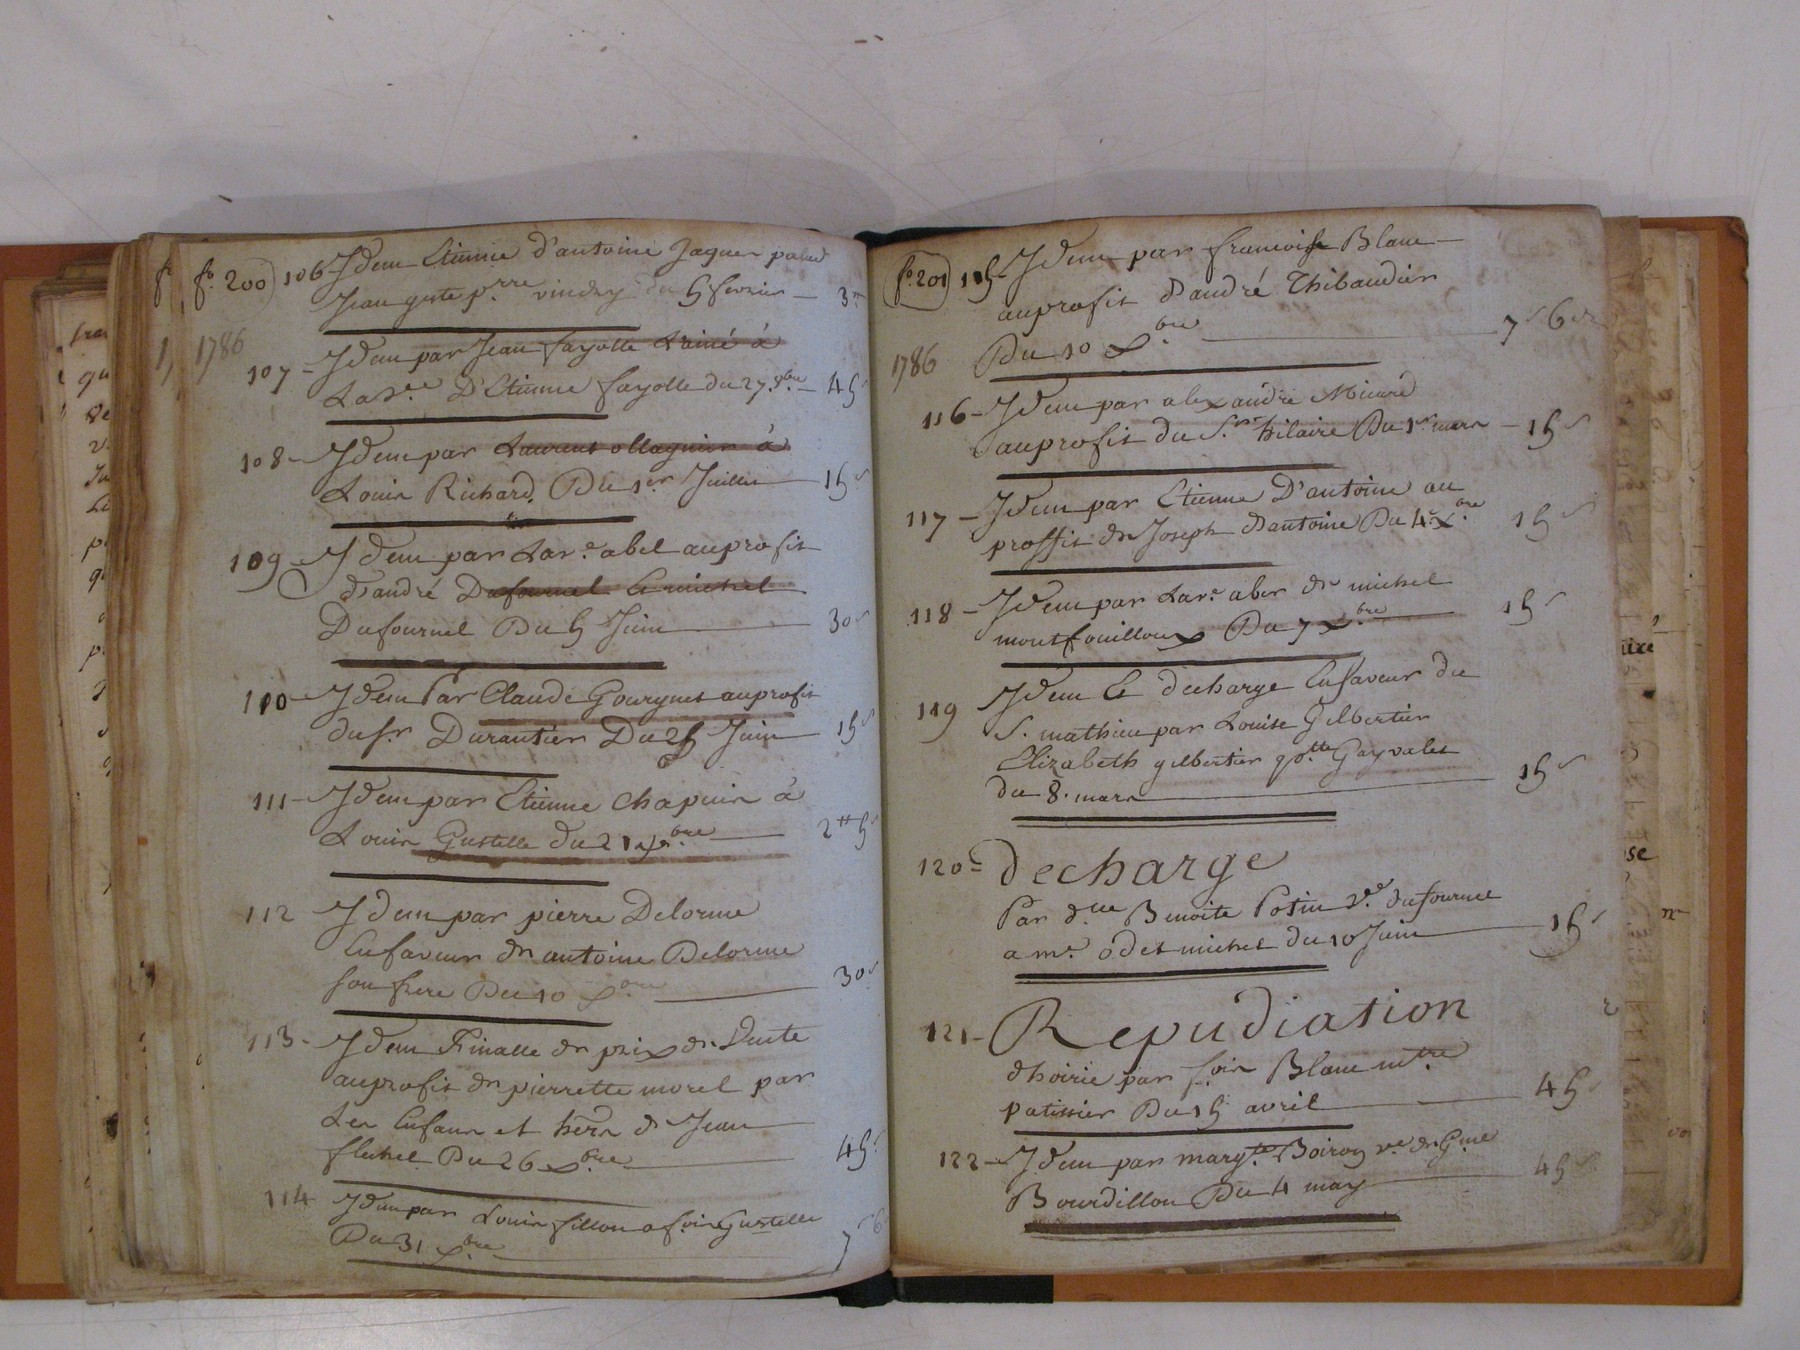 fo. 200
106 Idem Etienne d'antoine Jaquer
Jean vindry du 5 fevrier — 3tt
1786
107 - Idem par Jean fayolle Lainé à
La ve D'Etienne fayolle du 27. 9bre — 45s
108 - Idem par Laurent ollagnier à
Louis Richard. Du 1er Juillet — 15s
109 - Idem par La ve. abel auprofit
d'andré Dufournel Et michel
Dufournel Du 5 Juin — 30s
110 - Idem Par Claude Gourgnet auprofit
du sr Durantier Du 25 Juin — 15s
111 - Idem par Etienne Chapuis à
Louis Gustelle du 21 — 2tt 5s
112 Idem par pierre Delorme
En faveur de antoine Delorme
son frere Du 10 Xbre — 30s
113 - Idem Finalle de prix de Vente
auprofit de pierrette morel par
Les Enfans et hers de Jean
fluhet Du 26 Xbre — 45s
114 Idem par Louis fillon a fois Gustelle
Du 31 Xbre — 7s 6
fo. 201
115 - Idem par francoise Blanc
auprofit d'andré Thibaudier
Du 10 Xbre — 7s 6d
1786
116 - Idem par alexandre
auprofit du Sr. hilaire Du 1er mars — 15s
117 - Idem par Etienne D'antoine au
proffit de Joseph dantoine Du 4e. Xbre 15s
118 - Idem par La ve. de michel
montfouilloux Du 7 Xbre — 15s
119 Idem Et decharge En faveur du
S. mathieu par Louise Gilbertier
Elizabeth gilbertier Gayvalet
du 8. mars — 15s
120 = decharge
Par dlle Benoite Potin Ve. dufournel
a me. odet michel du 10 Juin — 15s
121 - Repudiation
dhoirie par fois Blanc mtre
patissier Du 15 avril — 45s
122 - Idem par margte. Boiron ve. de Gme
Bourdillon Du 4 may — 45s